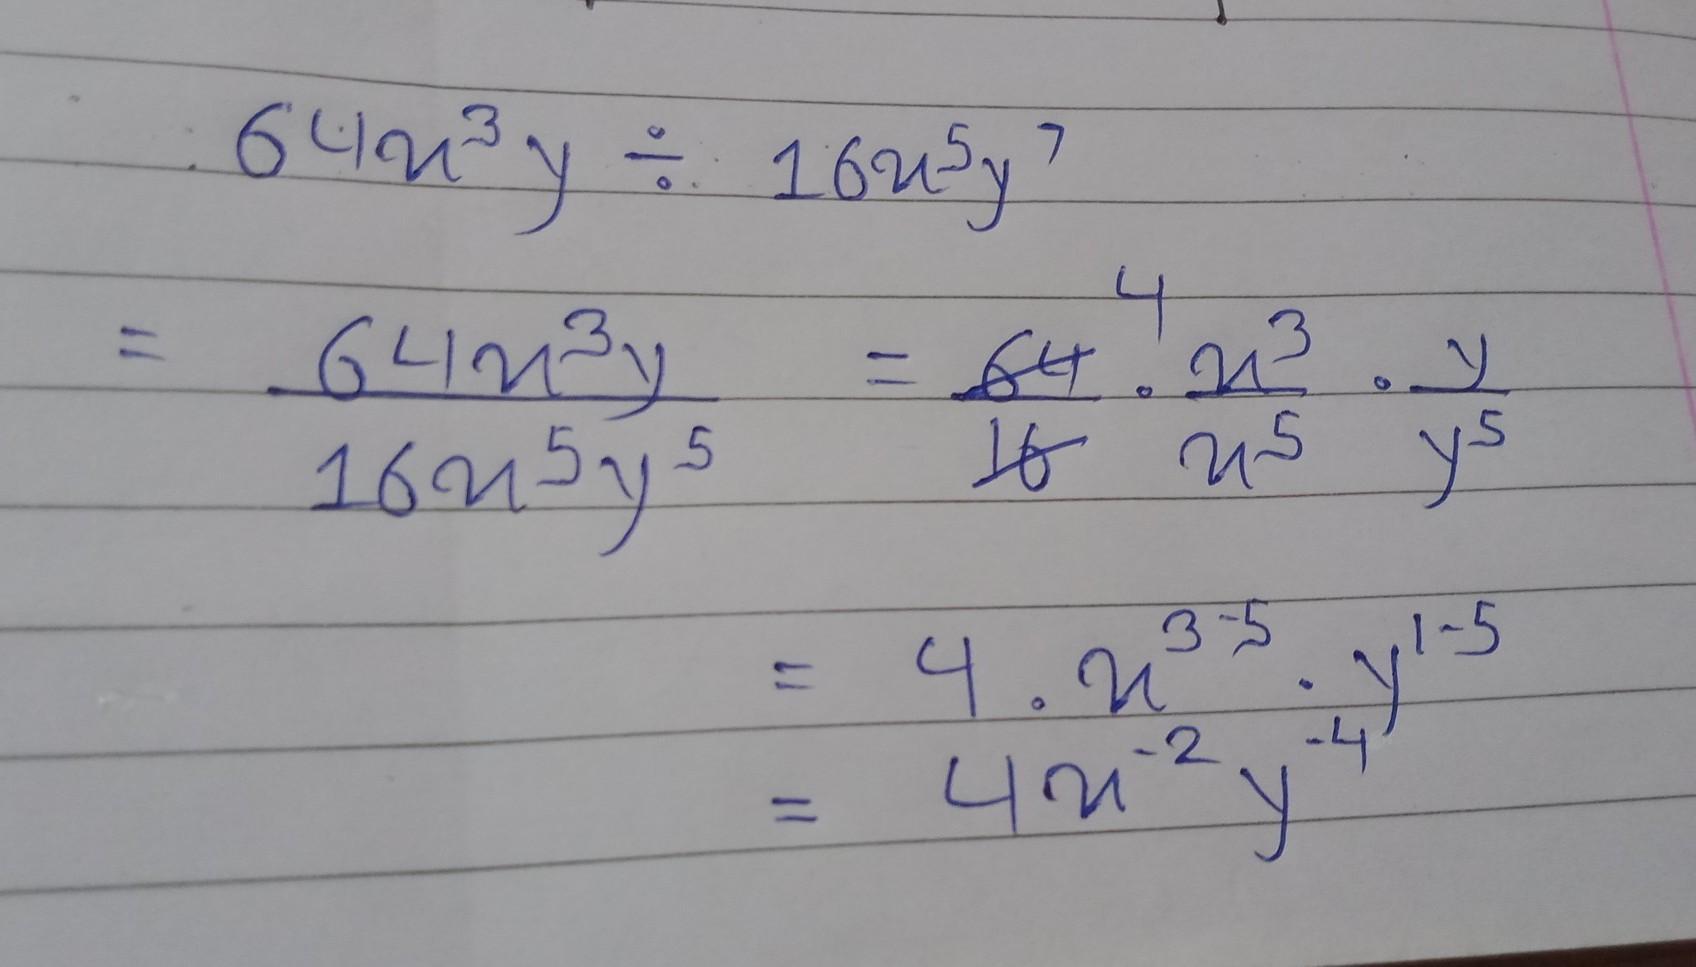 64x³y ÷ 16x⁵y⁷
= 64x³y / 16x⁵y⁵ = 64/16 4 · x³/x⁵ · y/y⁵
= 4 · x³⁻⁵ · y¹⁻⁵
= 4x⁻²y⁻⁴